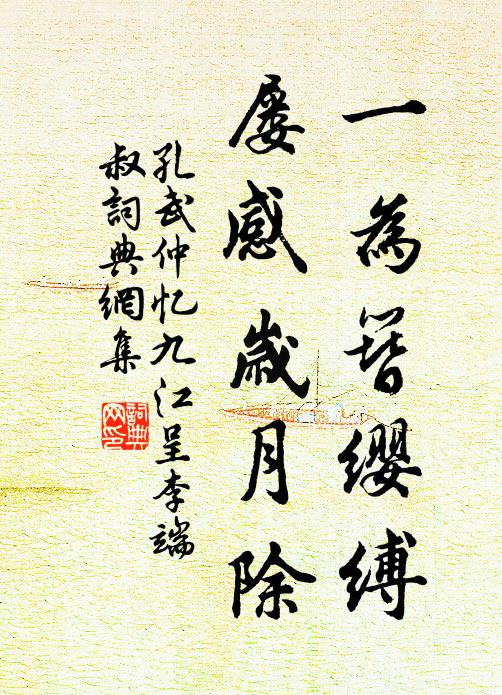 一為簪缨缚
屡感歲月除
孔武仲忆九江呈李端
叔詞典網集
詞典网印